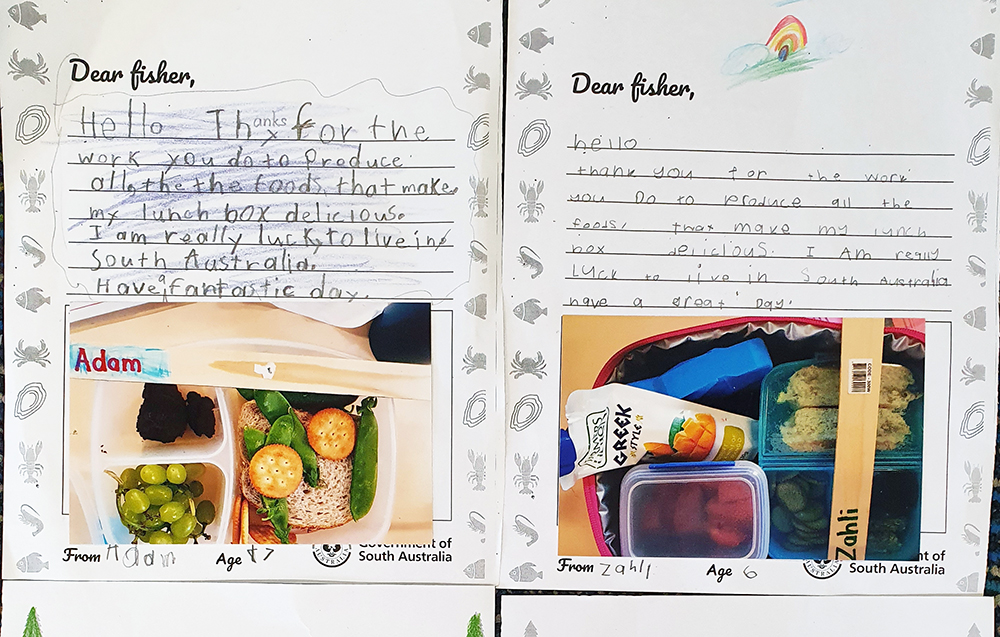 Dear fisher,
Hello Thanks for the
work you do to Produce
all, the the foods, that make
my lunch box delicious.
I am really luck, to live in
South Australia.
Have a fantastic day.
Adam
From Adam Age 7
Government of
South Australia
Dear fisher,
hello
thank you for the work
you Do to Produce all the
foods, that make my lynch
box delicious. I Am really
Luck to live in South Australia
have a great Day.
GREEK
STYLE
Zahli
From Zahli Age 6
ment of
South Australia